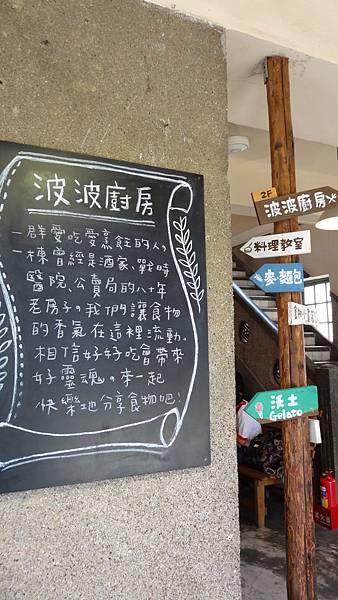 波波廚房
一群愛吃愛烹飪的人，
棟曾經是酒家、戰時
醫院、公賣局的八十年
老房子。我們讓食物
的香氣在這裡流動。
相信好好吃會帶來
好靈魂。來一起
快樂地分享食物吧！
2F
波波廚房
料理教室
麥麵包
沃土
Gelato